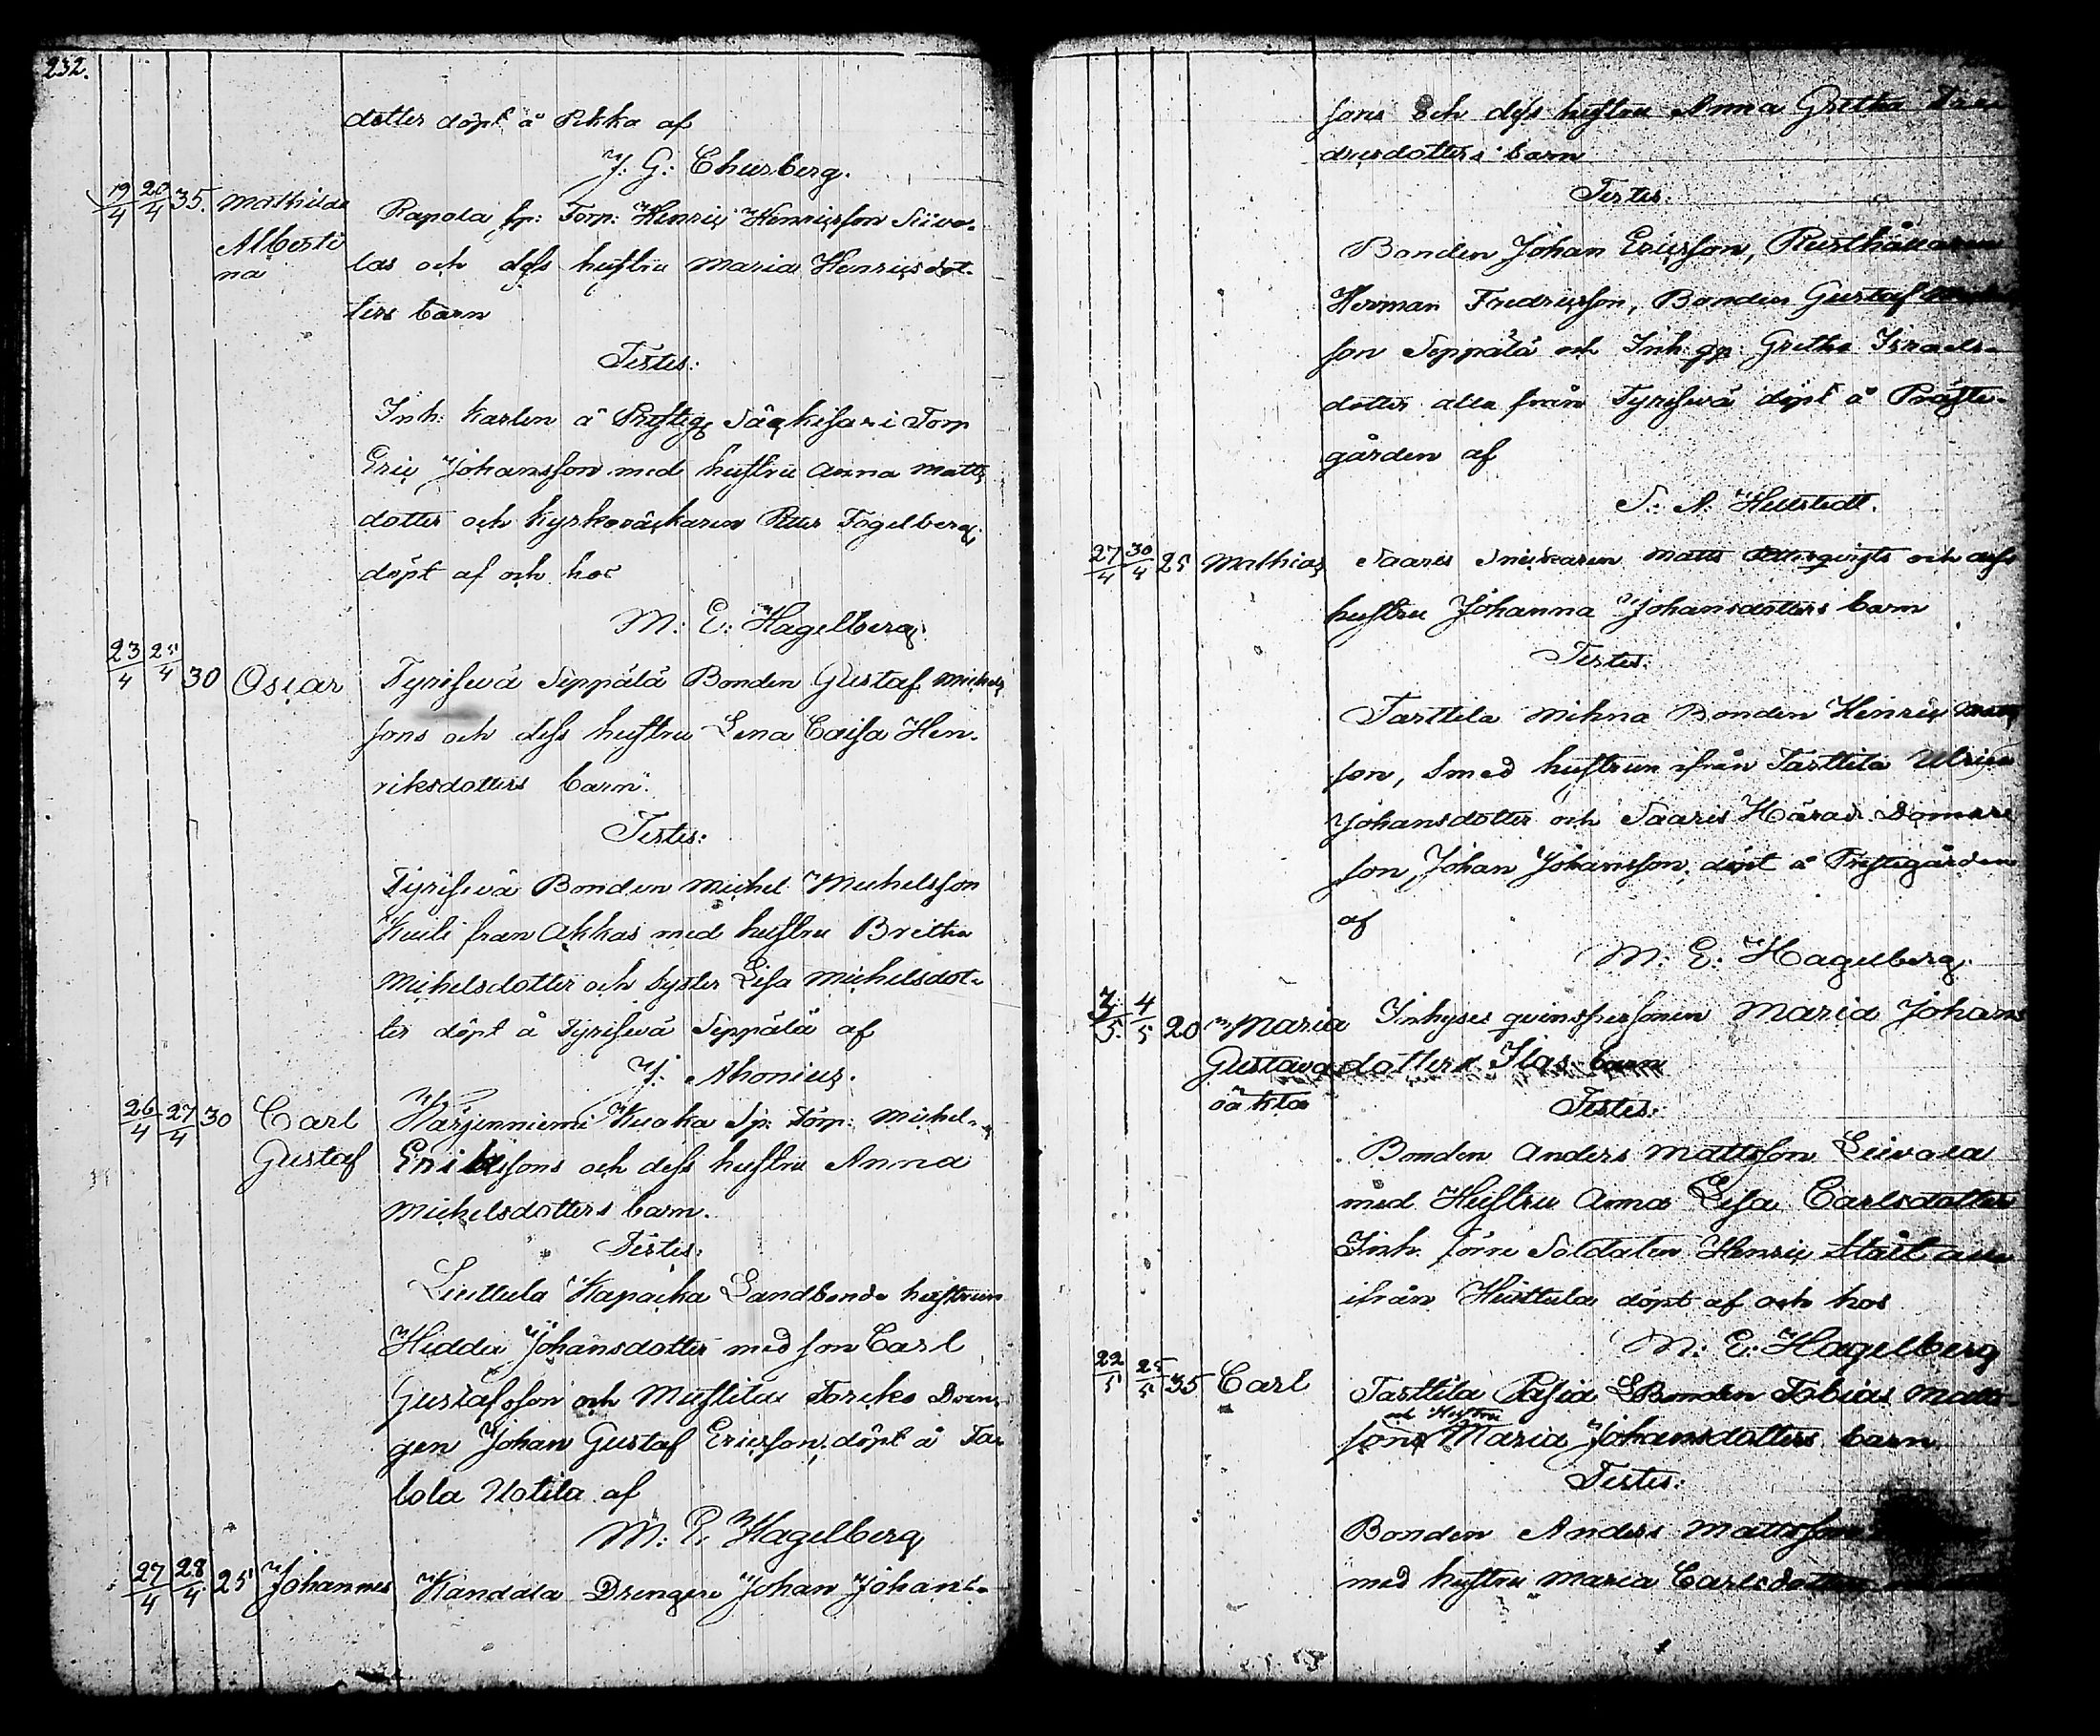 232.
dotter döpt å Pikka af
J. G: Churberg.
19/4 20/4 35. Mathilda Rapola sp: Torp: Henric Henricsson Siivo-
Alberti las och dess hustru Maria Henricsdot-
na ters barn
Testes:
Inh: karlen å Prestg Sääksesari Torp
Eric Johansson med hustru Anna Matts
dotter och kyrkoväcktaren Petter Fogelberg;
döpt af och hos
M: E: Hagelberg.
23/4 25/4 30 Oscar Tyrisevä Seppälä Bonden Gustaf Michels
sons och dess hustru Lena Caisa Hen-
riksdotters barn.
Testes:
Tyrisevä Bonden Michel Michelsson
från Akkas med hustru Britha
Michelsdotter och syster Lisa Michelsdot-
ter döpt å Tyrisevä Seppälä af
J. Ahonius.
26/4 27/4 30 Carl Härjenniemi Kuoka Sp: Torp: Michel
Gustaf Erikssons och dess hustru Anna
Michelsdotters barn.
Testes:
Liuttula Kapacka Landbonde hustrun
Hedda Johansdotter med son Carl
Gustafsson och Mustila Toriko Dren-
gen Johan Gustaf Ericsson; döpt å Tar-
lola Uotila af
M: E: Hagelberg
27/4 28/4 25 Johannes Kandala Drengen Johan Johans-
sons och dess hustru Anna Gretha
drusdotters barn
Testes:
Bonden Johan Ericsson, Rusthållaren
Herman Fredricsson, Bonden Gustaf
son Seppälä och Inh: qp: Gretha Israels-
dotter alla från Tyrisevä döpt å Präste-
gården af
S: A: Hellstedt.
27/4 30/4 25 Mathias Saaris Snickaren Matts och dess
hustru Johanna Johansdotters barn
Testes:
Tarttila Mihna Bonden Henric Matts
son, Smed hustrun ifrån Tarttila Ulrica
Johansdotter och Saaris Härads Domare
son, Johan Johansson, döpt å Prestegården
af
M: E: Hagelberg.
3/5 4/5 20 Maria Inhyses qvinspersonen Maria Johans
Gustava dotters Ilas barn
oäkta Testes:
Bonden Anders Mattsson Leivala
med Hustru Anna Lisa Carlsdotter
Inh. förre Soldaten Henric Stål alla
ifrån Huittula döpt af och hos
M: E: Hagelberg
22/5 25/5 35 Carl Tarttila Pasia LBonden Tobias Matts-
och Hustru
sons Maria Johansdotters barn
Testes:
Bonden Anders Mattsson
med hustru Maria Carlsdotter